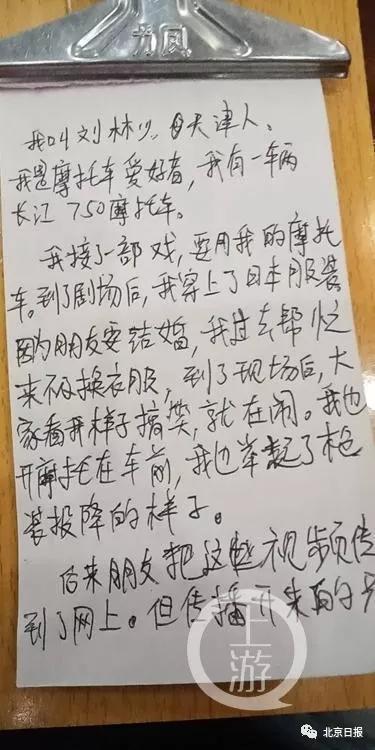 力风
我叫刘林,天津人。
我是摩托车爱好者,我有一辆
长江750摩托车。
我接了一部戏,要用我的摩托
车。到了剧场后,我穿上了日本服装
因为朋友要结婚,我过去帮忙
来不及换衣服,到了现场后,大
家看我样子搞笑,就在闹。我也
开摩托在车前,我也举起了枪
装投降的样子。
后来朋友把这些视频传
到了网上。但传播开来的
上游
北京日报